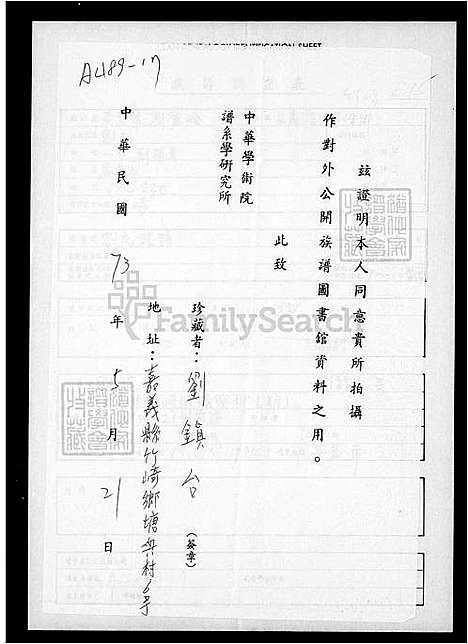 A489-17
茲證明本人同意貴所拍攝
作對外公開族譜圖書館資料之用。
此致
中華學術院
譜系學研究所
珍藏者:劉鎮台(簽章)
地址:嘉義縣竹崎鄉塘興村6号
中華民國73年5月21日
FamilySearch